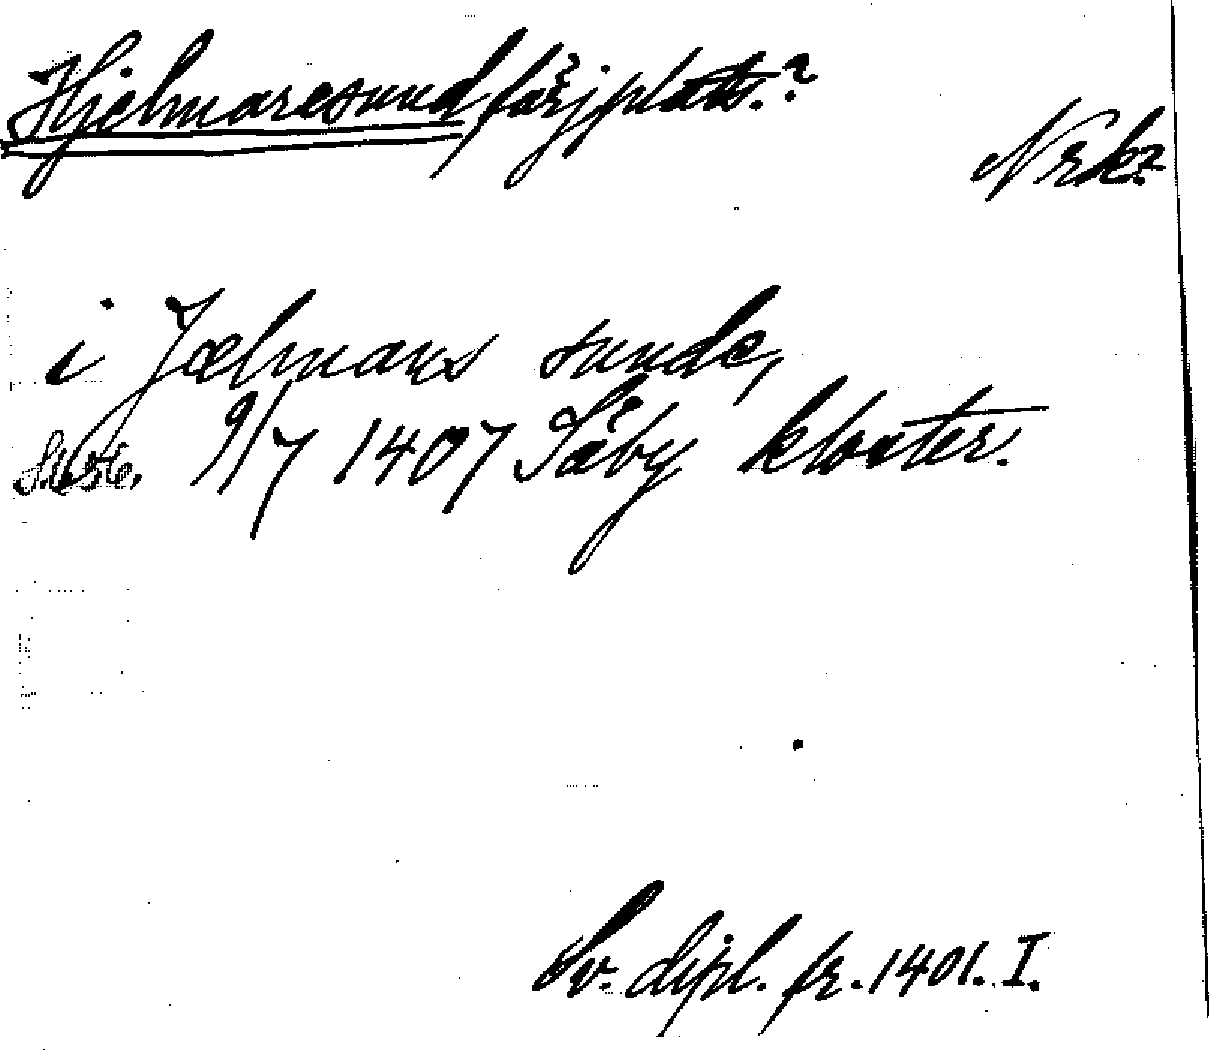 Hjelmaresund färjplats.?
Nrk?
i Jælmans sunde,
9/7 1407 Säby kloster.
Sv. dipl. fr. 1401. I.